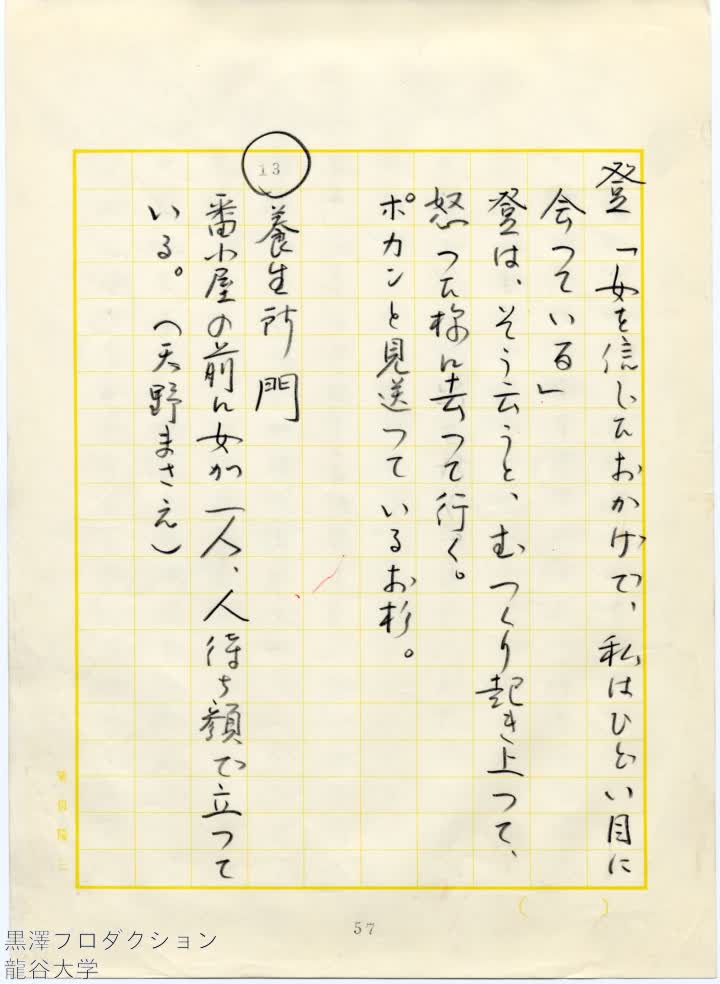 登「女を信じたおかげで、私はひどい目に
会つている」
登は、そう云うと、むつくり起き上つて、
怒つた様に去つて行く。
ポカンと見送つているお杉。
13 養生所 門
番小屋の前に女が一人、人待ち顔で立つて
いる。(天野まさえ)
57
黒澤プロダクション
龍谷大学